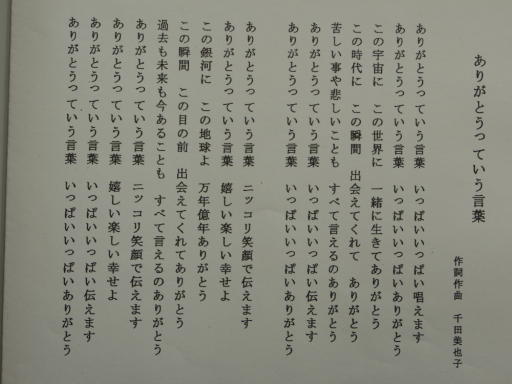 ありがとうっていう言葉
作詞作曲　千田美也子
ありがとうっていう言葉　いっぱいいっぱい唱えます
ありがとうっていう言葉　いっぱいいっぱいありがとう
この宇宙に　この世界に　一緒に生きてありがとう
この時代に　この瞬間　出会えてくれて　ありがとう
苦しい事や悲しいことも　すべて言えるのありがとう
ありがとうっていう言葉　いっぱいいっぱい伝えます
ありがとうっていう言葉　いっぱいいっぱいありがとう
ありがとうっていう言葉　ニッコリ笑顔で伝えます
ありがとうっていう言葉　嬉しい楽しい幸せよ
この銀河に　この地球よ　万年億年ありがとう
この瞬間　この目の前　出会えてくれてありがとう
過去も未来も今あることも　すべて言えるのありがとう
ありがとうっていう言葉　ニッコリ笑顔で伝えます
ありがとうっていう言葉　嬉しい楽しい幸せよ
ありがとうっていう言葉　いっぱいいっぱい伝えます
ありがとうっていう言葉　いっぱいいっぱいありがとう